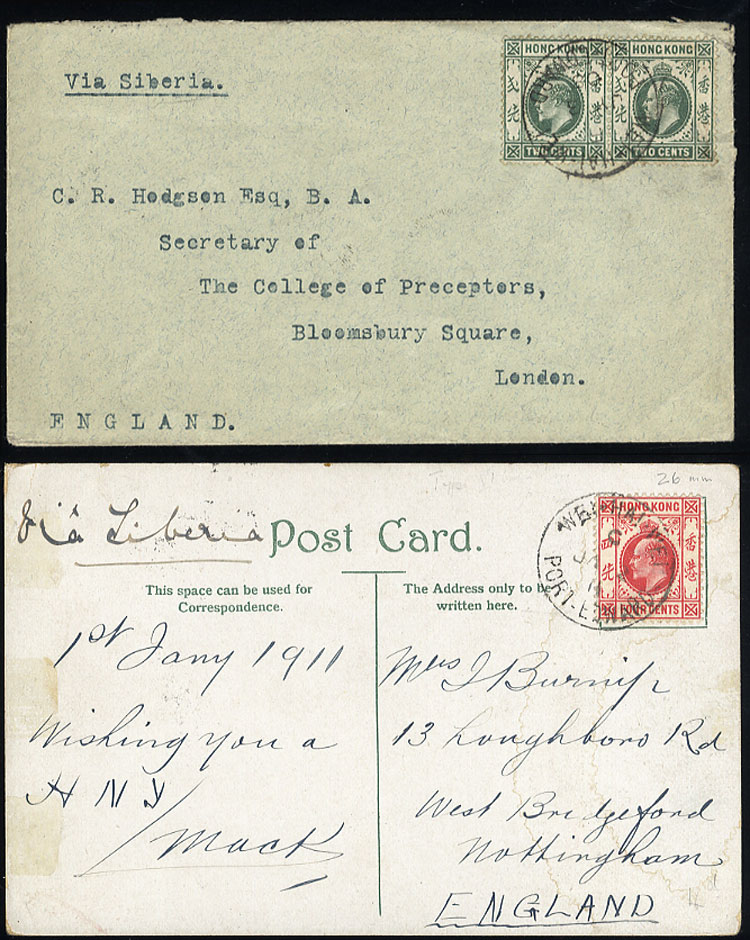 Via Siberia.
HONG KONG HONG KONG
香港 香港
TWO CENTS TWO CENTS
C. R. Hodgson Esq, B. A.
Secretary of
The College of Preceptors,
Bloomsbury Square,
London.
ENGLAND.
26 mm
Viâ Siberia
Post Card.
WEI-HAI-WEI
PORT-EDWARD
HONG KONG
香港
FOUR CENTS
This space can be used for
Correspondence.
The Address only to be
written here.
1st Jany 1911
Wishing you a
H N Y
Mack
Burnip
13 Loughboro Rd
West Bridgeford
Nottingham
ENGLAND